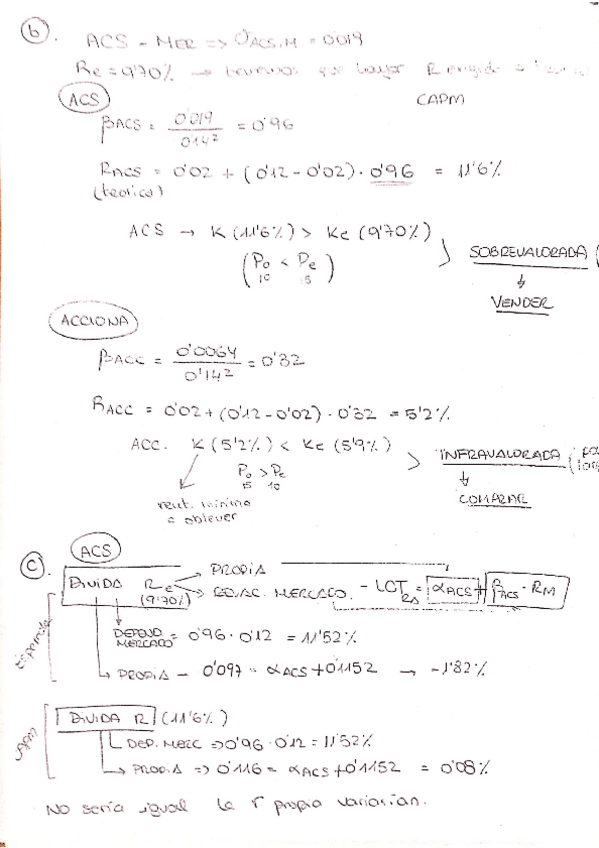 b.
ACS - MER => σACS,M = 0'019
Re = 9'70% → tenemos que hayar R exigida a
CAPM
ACS
βACS = 0'019 / 0'14² = 0'96
RACS = 0'02 + (0'12 - 0'02) · 0'96 = 11'6%
(teorico)
ACS → K (11'6%) > Ke (9'70%)
(Po < Pe)
10 15
SOBREVALORADA
↓
VENDER
ACCIONA
βACC = 0'0064 / 0'14² = 0'32
RACC = 0'02 + (0'12 - 0'02) · 0'32 = 5'2%
ACC. K (5'2%) < Ke (5'9%)
Po > Pe
15 10
INFRAVALORADA
↓
COMPRAR
rent. minima
a obtener
c.
ACS
Esperada
DIVIDA Re (9'70%)
→ PROPIA
→ RELAC. MERCADO - LCT = αACS + βACS · RM
DEPEND MERCADO = 0'96 · 0'12 = 11'52%
→ PROPIA - 0'097 = αACS + 0'1152 → -1'82%
CAPM
DIVIDA R (11'6%)
DEP. MERC => 0'96 · 0'12 = 11'52%
→ PROPIA => 0'116 = αACS + 0'1152 = 0'08%
NO sería igual la r propia variarían.